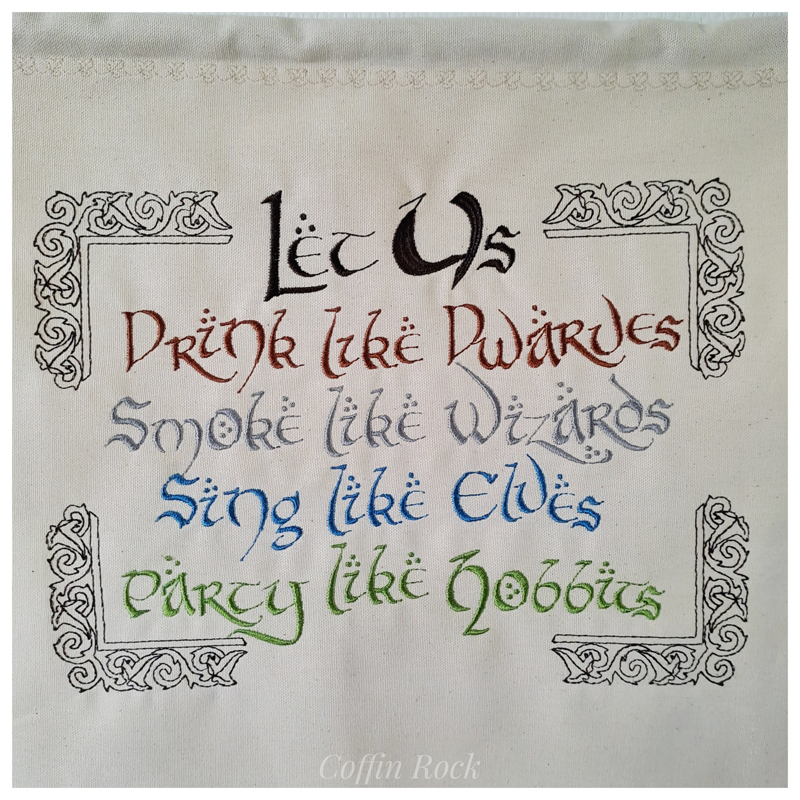 Let Us
Drink like Dwarves
Smoke like Wizards
Sing like Elves
Party like Hobbits
Coffin Rock